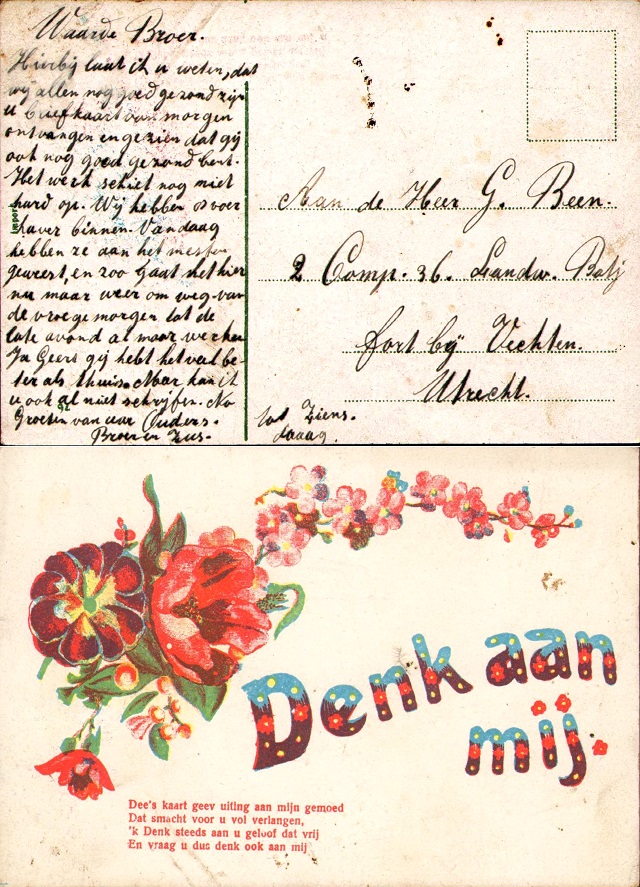 Waarde Broer.
Hierbij laat ik u weten, dat
wij allen nog goed gezond zijn
u briefkaart van morgen
ontvangen en gezien dat gij
ook nog goed gezond bent.
Het werk schiet nog niet
hard op. Wij hebben voer
klaver binnen. Vandaag
hebben ze aan het mesten
geweest, en zoo gaat het hier
nu maar weer om weg van
de vroege morgen tot de
late avond al maar werken
Ja Geert gij hebt het veel be-
ter als thuis. Maar kan ik
u ook al niet schrijfen. No
Groeten van uw Ouders.
Broer en Zus.
tot Ziens.
daaag.
Import
Aan de Heer G. Been.
2 Comp. 36. Landw. Batj
fort bij Vechten.
Utrecht.
Denk aan
mij.
Dee's kaart geev uiting aan mijn gemoed
Dat smacht voor u vol verlangen,
'k Denk steeds aan u geloof dat vrij
En vraag u dus denk ook aan mij